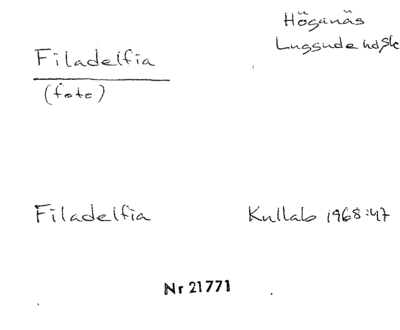 Höganäs
Luggude hdSk
Filadelfia
(foto)
Filadelfia Kullab 1968:47
Nr 21771